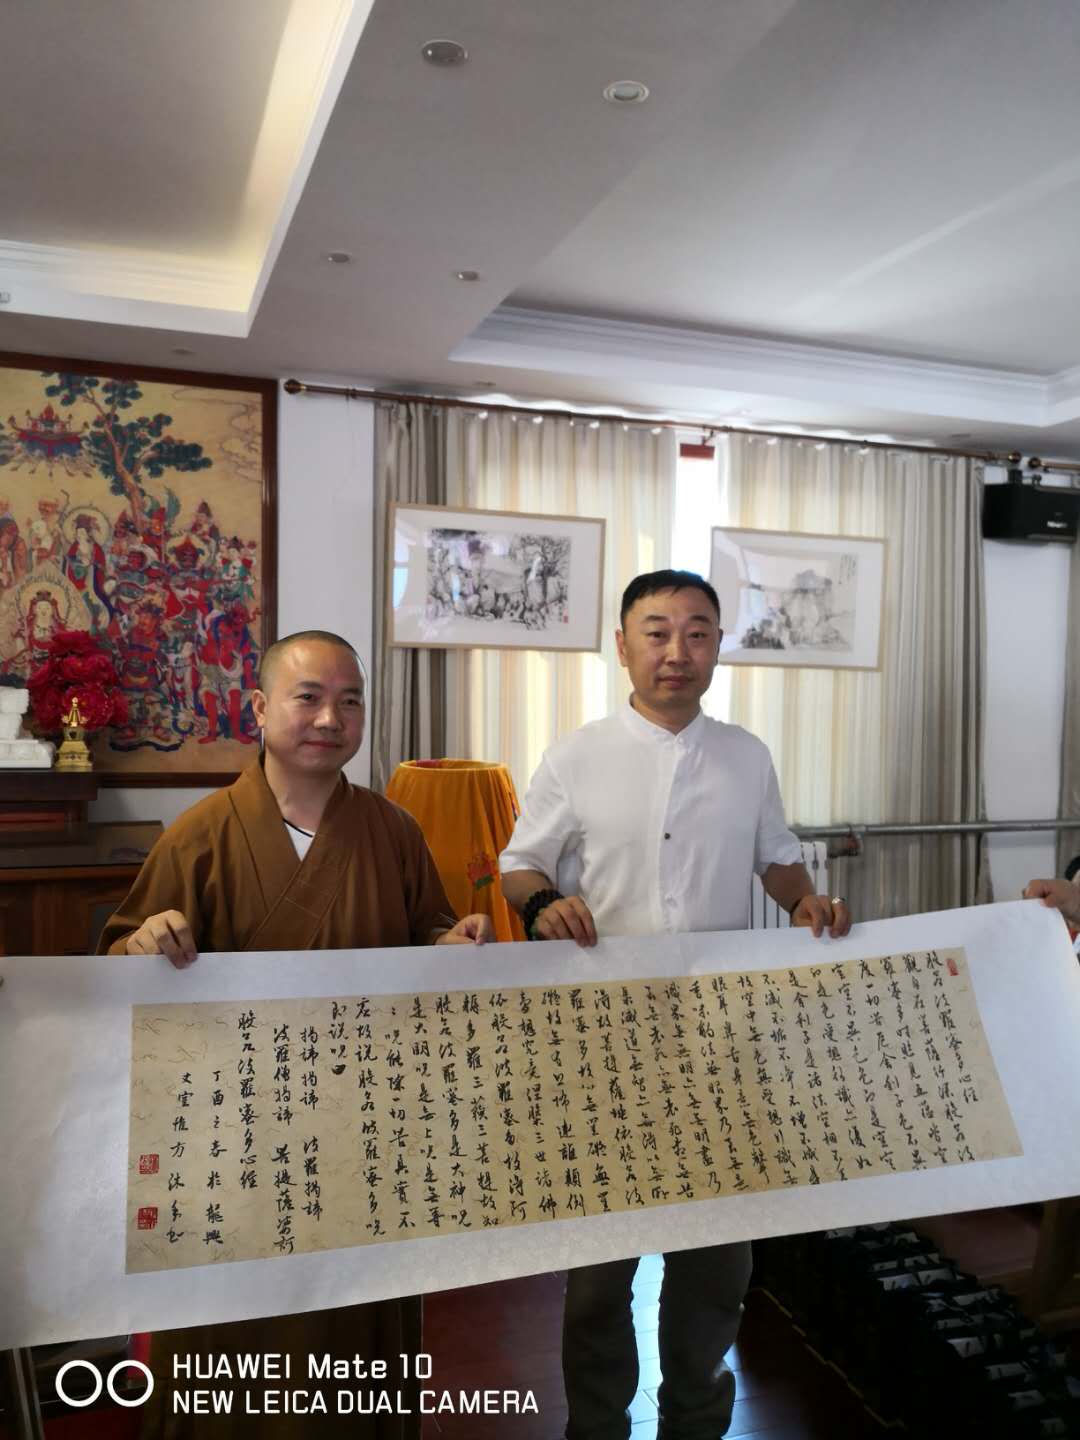 般若波羅蜜多心經
觀自在菩薩行深般若波
羅蜜多時照見五蘊皆空
度一切苦厄舍利子色不異
空空不異色色即是空空
即是色受想行識亦復如
是舍利子是諸法空相不生
不滅不垢不淨不增不減是
故空中無色無受想行識無
眼耳鼻舌身意無色聲
香味觸法無眼界乃至無意
識界無無明亦無無明盡乃
至無老死亦無老死盡無苦
集滅道無智亦無得以無所
得故菩提薩埵依般若波
羅蜜多故心無罣礙無罣
礙故無有恐怖遠離顛倒
夢想究竟涅槃三世諸佛
依般若波羅蜜多故得阿
耨多羅三藐三菩提故知
般若波羅蜜多是大神呪
是大明呪是無上呪是無等
呪能除一切苦真實不
虛故說般若波羅蜜多呪
即說呪曰
揭諦揭諦 波羅揭諦
波羅僧揭諦 菩提薩婆訶
般若波羅蜜多心經
丁酉之春於龍興
丈室惟方沐手書
HUAWEI Mate 10
NEW LEICA DUAL CAMERA